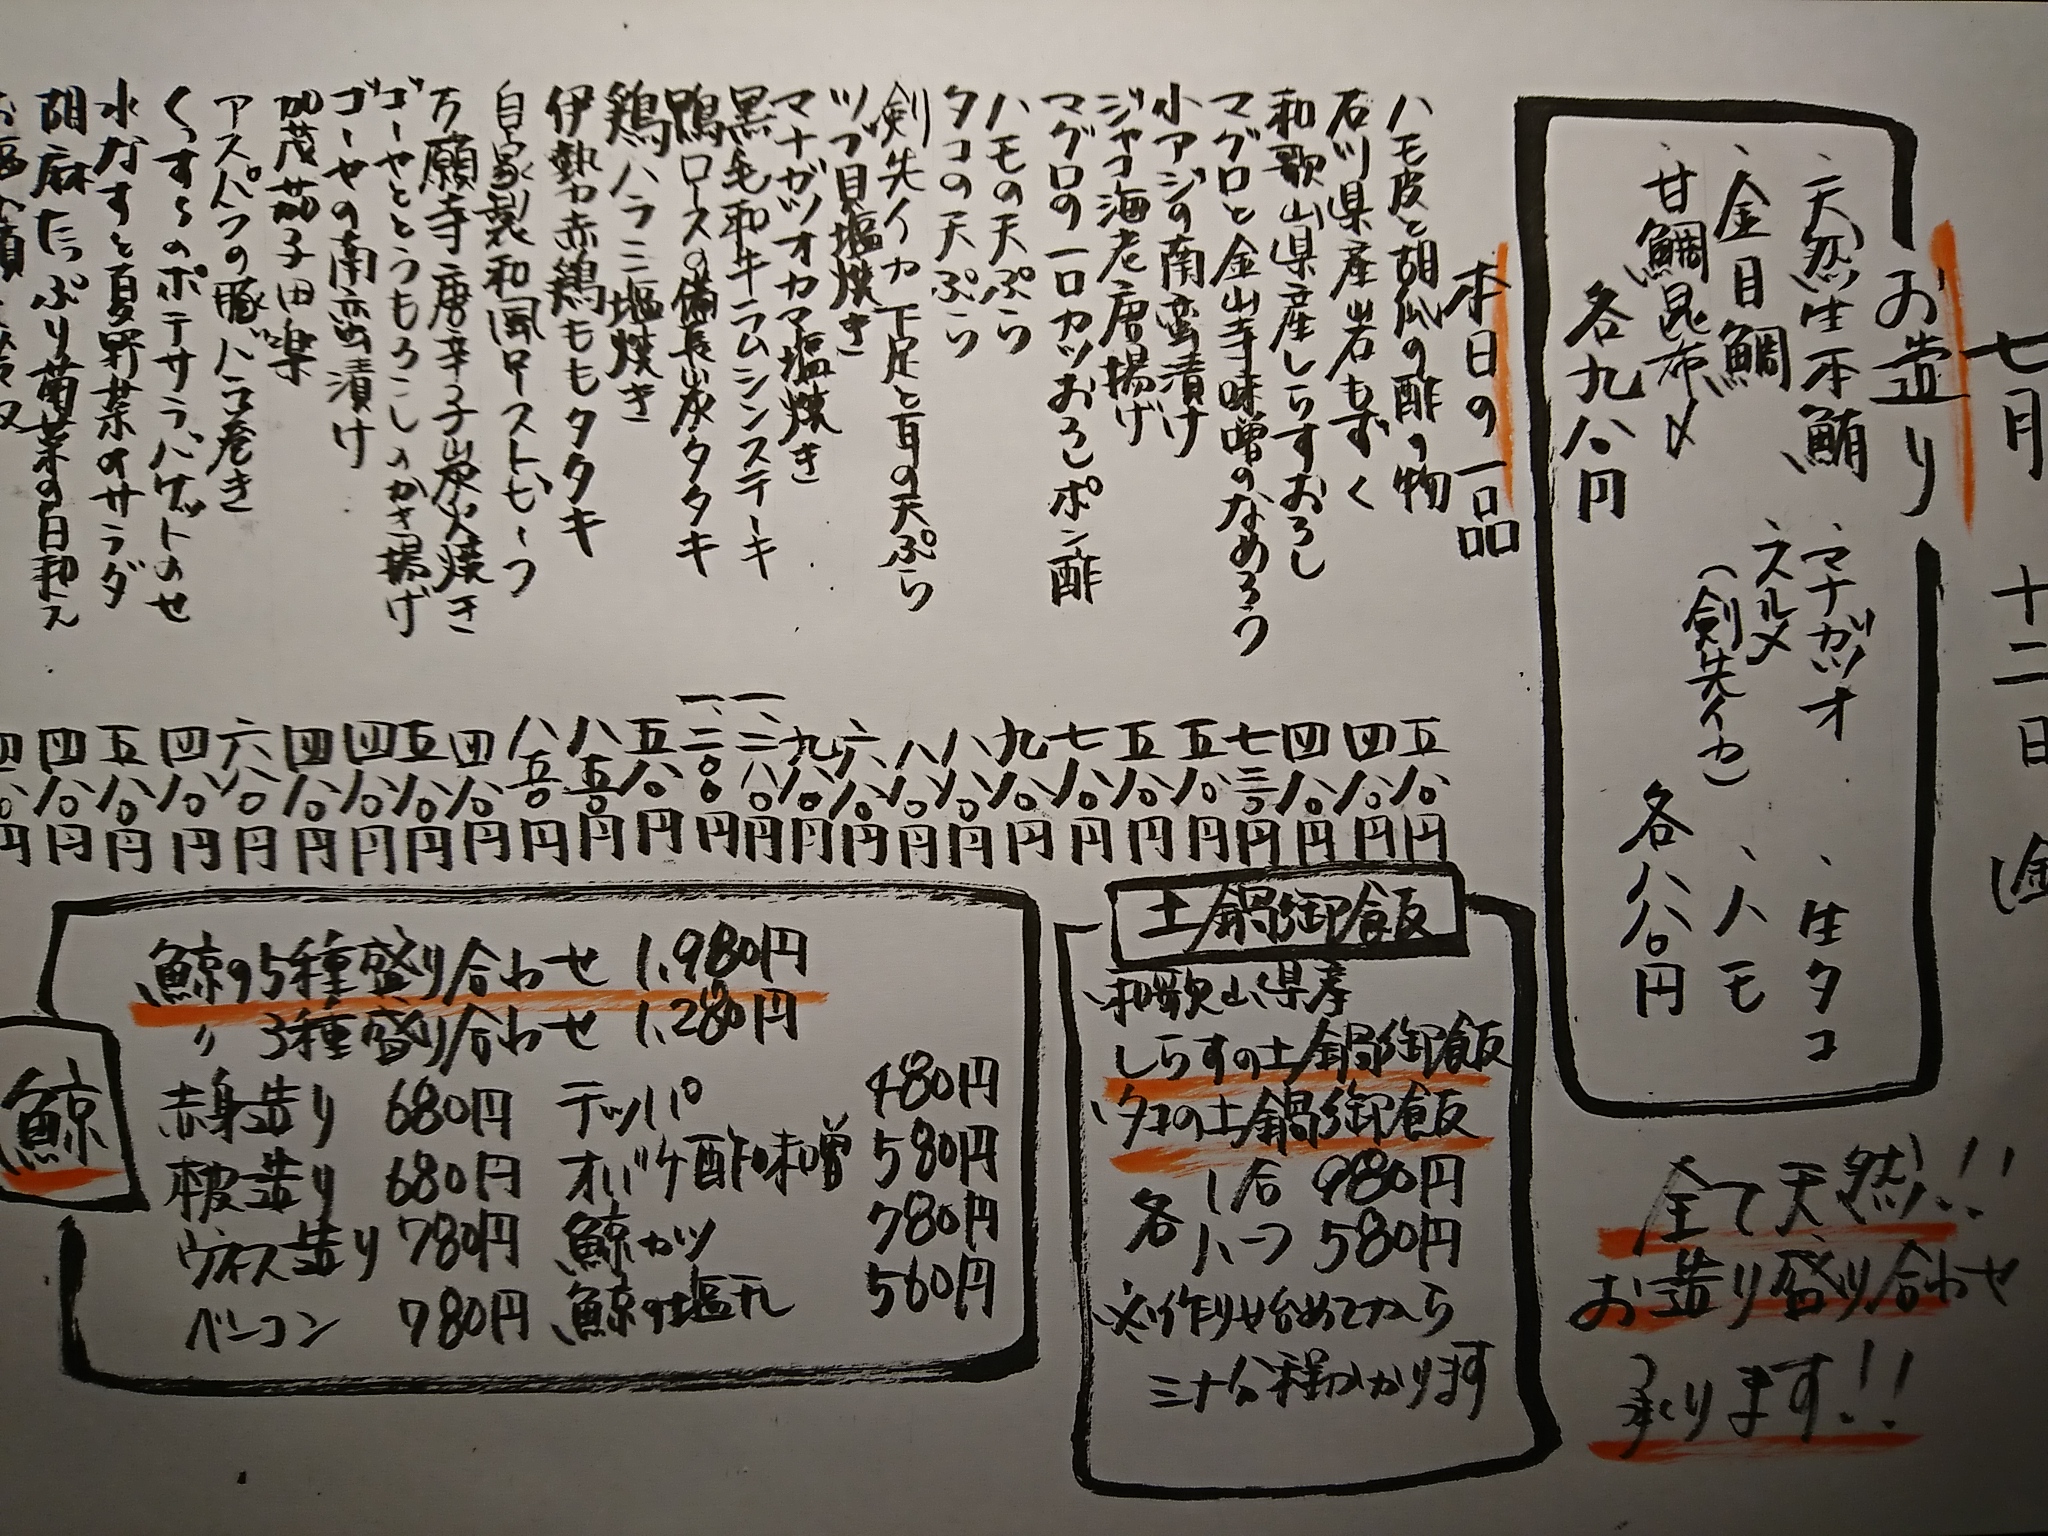 七月 十二日 (金
お造り
、天然生本鮪 、マナガツオ 、生タコ
、金目鯛 、スルメ 、ハモ
(剣先イカ)
、甘鯛昆布〆
各九八〇円
各八八〇円
全て天然!!
お造り盛り合わせ
承ります!!
本日の一品
ハモ皮と胡瓜の酢の物 五八〇円
石川県産岩もずく 四八〇円
和歌山県産しらすおろし 四八〇円
マグロと金山寺味噌のなめろう 七三〇円
小アジの南蛮漬け 五八〇円
ジャコ海老唐揚げ 五八〇円
マグロの一口カツおろしポン酢 七八〇円
ハモの天ぷら 九八〇円
タコの天ぷら 八八〇円
剣先イカ下足と耳の天ぷら 八八〇円
ツブ貝塩焼き 六八〇円
マナガツオカマ塩焼き 九八〇円
黒毛和牛ラムシンステーキ 一、二八〇円
鴨ロースの備長炭タタキ 一、二〇〇円
鶏ハラミ塩焼き 五八〇円
伊勢赤鶏ももタタキ 八五〇円
自家製和風ローストビーフ 八五〇円
万願寺唐辛子炭火焼き 四八〇円
ゴーヤととうもろこしのかき揚げ 五八〇円
ゴーヤの南蛮漬け 四八〇円
加茂茄子田楽 四八〇円
アスパラの豚バラ巻き 六八〇円
くんすものポテサラバゲットのせ 四八〇円
水なすと夏野菜のサラダ 五八〇円
胡麻たっぷり菊菜の白和え 四八〇円
四八〇円
土鍋御飯
、和歌山県産
しらすの土鍋御飯
、タコの土鍋御飯
各 1合 980円
ハーフ 580円
※作り始めてから
三十分程かかります
鯨
、鯨の5種盛り合わせ 1,980円
〃 3種盛り合わせ 1,280円
赤身造り 680円 テッパ 480円
本皮造り 680円 オバケ酢味噌 580円
ウネス造り 780円 鯨カツ 780円
ベーコン 780円 鯨の塩タレ 560円